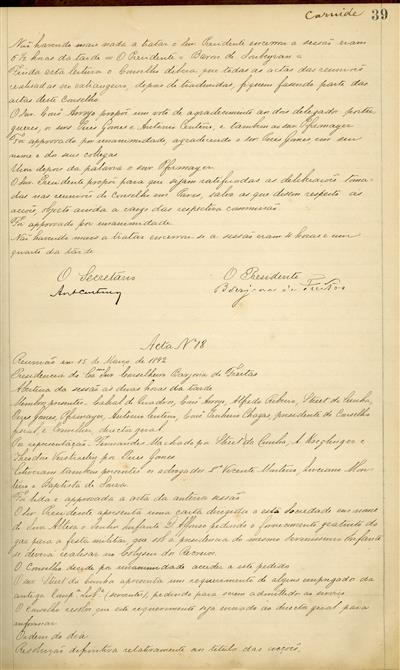 Carnide 39
Não havendo mais nada a tratar o Snr Presidente encerrou a sessão eram
6 ½ horas da tarde = O Presidente = Baron de Soubeyran =
Finda esta leitura o Conselho delibera que todas as actas das reuniões
realisadas no extrangeiro, depois de traduzidas, fiquem fazendo parte das
actas deste Conselho
O Snr. Arroyo propõe um voto de agradecimento aos dois delegados portu
guezes, os snrs Pires Gomes e Antonio Centeno, e tambem ao snr Ofrsmayer
Foi approvada por unanimidade, agradecendo o snr Pires Gomes em seu
nome e do seus collegas
Usou depois da palavra o snr
O Snr Presidente propõe para que sejam ratificadas as deliberações toma
das nas reuniões do Conselho em Paris, salvo as que dizem respeito às
acções, objecto ainda a cargo da respectiva commissão
Foi approvado por unanimidade
Não havendo mais a tratar encerrou-se a sessão eram 4 horas e um
quarto da tarde
O Secretario O Presidente
Ant Centeno Barjona de Freitas
Acta Nº 18
Reunião em 15 de Março de 1892
Presidencia do Exmo Snr Conselheiro Barjona de Freitas
Abertura da sessão as duas horas da tarde
Membros presentes: Cabral de Arroyo, Alfredo Ribeiro, da Cunha,
Pires Gomes, Antonio Centeno, Pinheiro Chagas, presidente do Conselho
fiscal, e director geral
Por representação: Fernandes Machado por da Cunha, A. e
por Pires Gomes
Estiveram tambem presentes os advogados Drs Vicente Monteiro, Luciano Mon
teiro e Baptista de Sousa
Foi lida e approvada a acta da anterior sessão
O Snr Presidente apresenta uma carta dirigida a esta Sociedade em nome
de Sua Alteza o Senhor Infante D. Affonso pedindo o fornecimento gratuito do
gaz para a festa militar que sob a presidencia do mesmo Serenissimo Infante
se deveria realisar no Colyseu do Recreios.
O Conselho decide por unanimidade acceder a este pedido
O snr da Cunha apresenta um requerimento de alguns empregados da
antiga Compª pedindo para serem admittidos ao serviço
O Conselho resolve que este requerimento seja enviado ao director geral para
informar
Ordem do dia
Resolução definitiva relativamente ao titulo das acções.